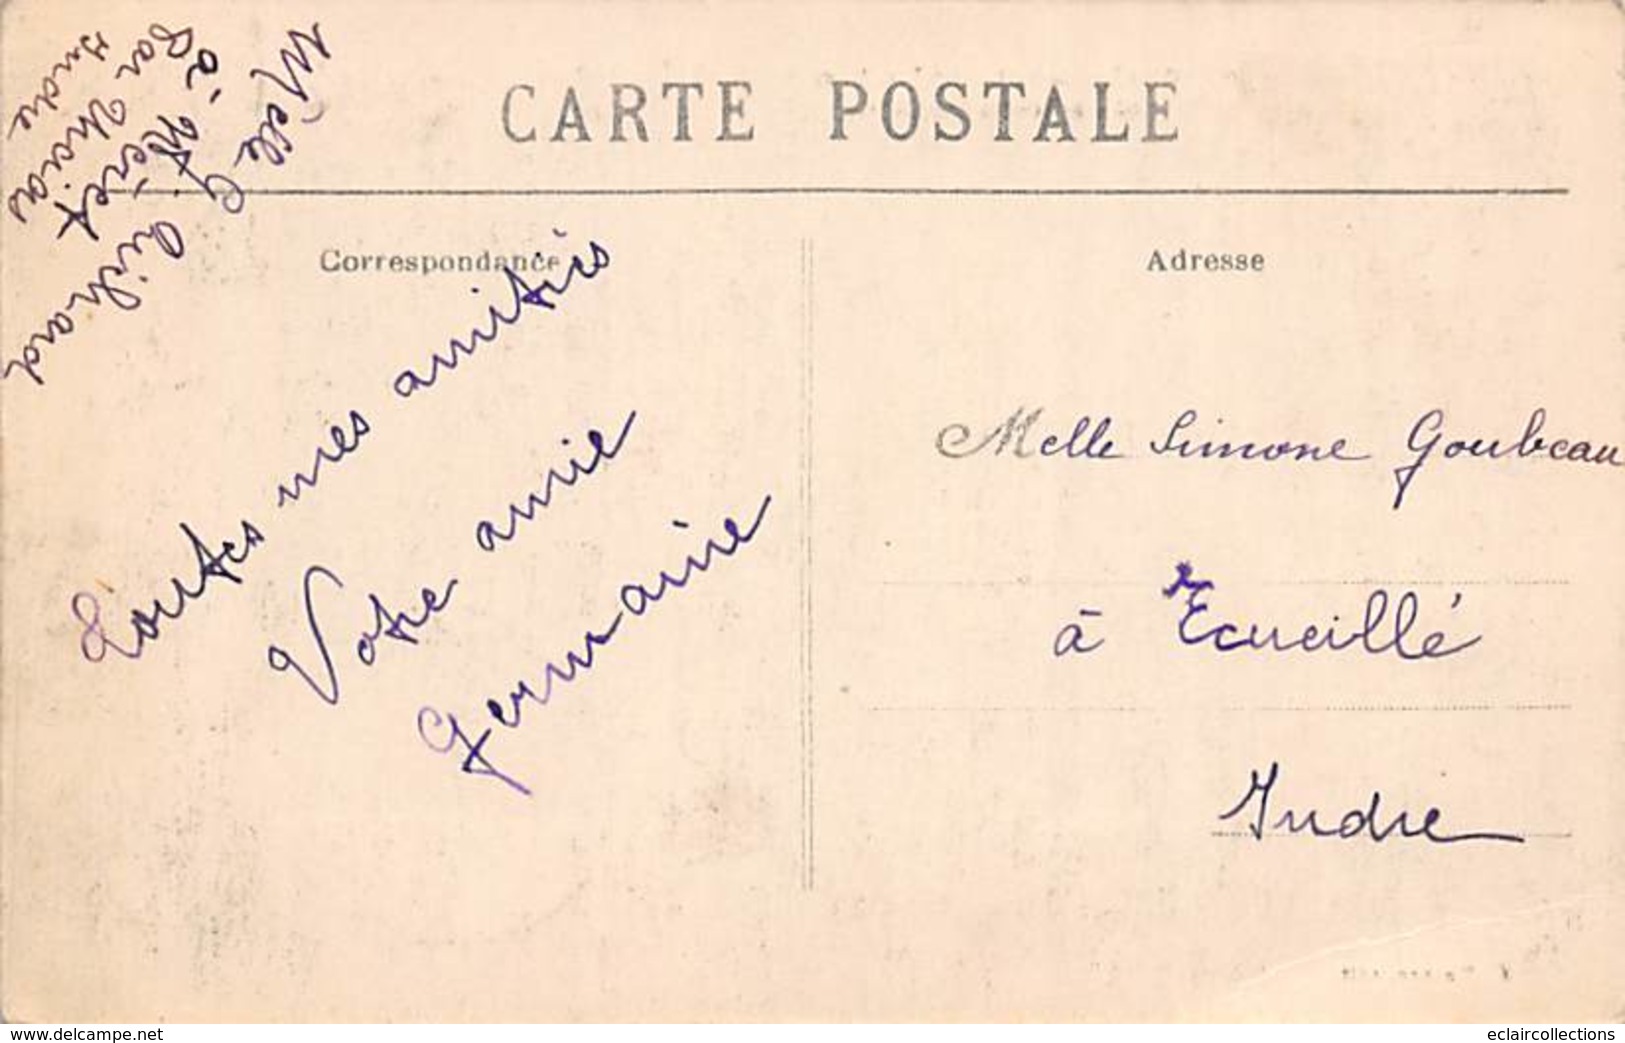 CARTE POSTALE
Correspondance
Adresse
Melle G
à Néret
par Thais
Indre
Toutes mes amitiés
Votre amie
Germaine
Melle Simone Goubeau
à Ecueillé
Indre
www.delcampe.net
eclaircollections